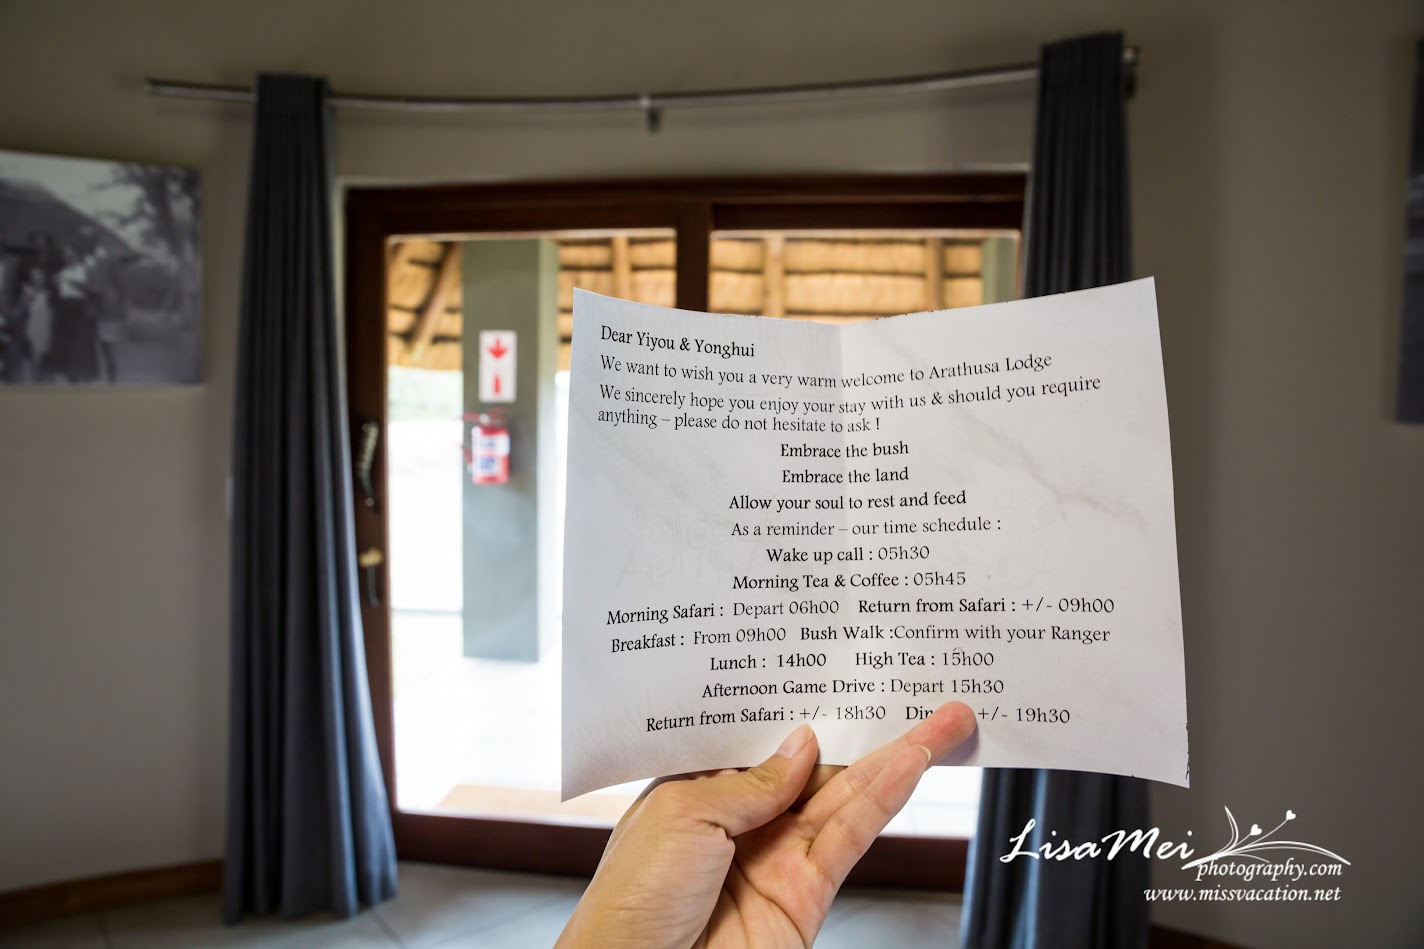 Dear Yiyou & Yonghui
We want to wish you a very warm welcome to Arathusa Lodge
We sincerely hope you enjoy your stay with us & should you require
anything – please do not hesitate to ask !
Embrace the bush
Embrace the land
Allow your soul to rest and feed
As a reminder – our time schedule :
Wake up call : 05h30
Morning Tea & Coffee : 05h45
Morning Safari : Depart 06h00 Return from Safari : +/- 09h00
Breakfast : From 09h00 Bush Walk :Confirm with your Ranger
Lunch : 14h00 High Tea : 15h00
Afternoon Game Drive : Depart 15h30
Return from Safari : +/- 18h30 +/- 19h30
LisaMei
photography.com
www.missvacation.net